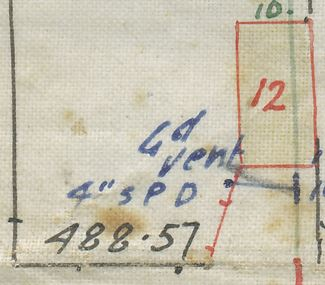 10.
12
Gd
vent
4" S P D
488.57